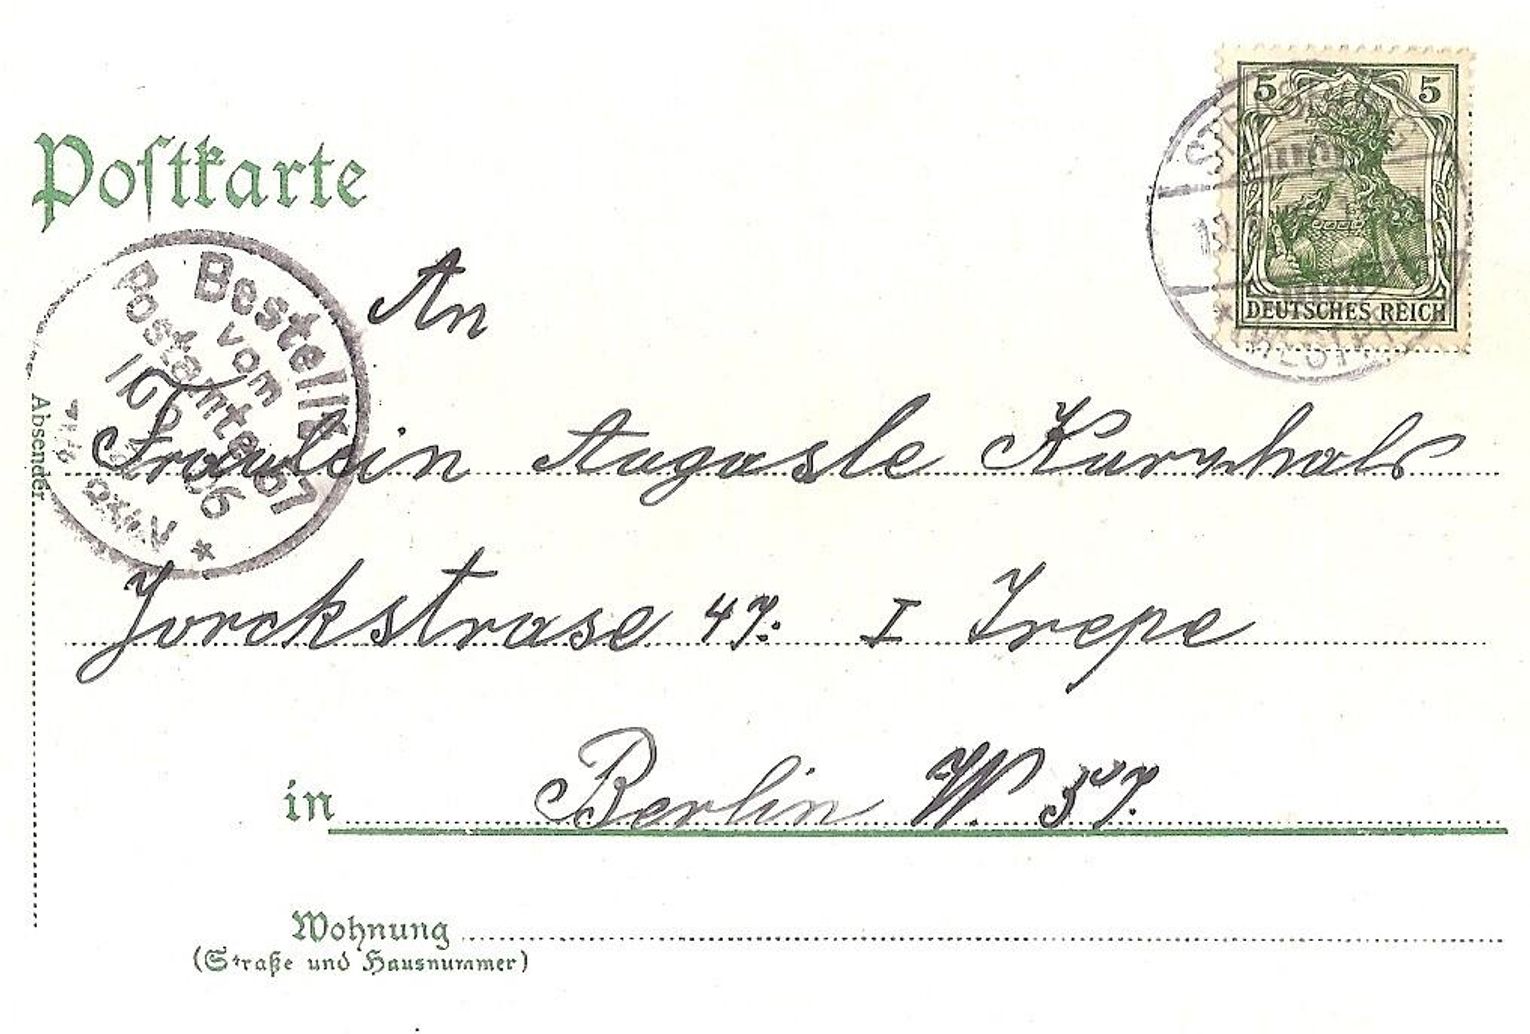 Postkarte
5 5
DEUTSCHES REICH
Bestellt
vom
Postamte 57
An
Absender
Fräulein Auguste Kurnhals
Jorckstrase 47. I Trepe
in Berlin W. 57.
Wohnung
(Straße und Hausnummer)